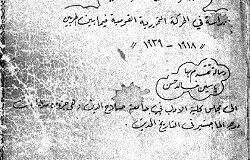 دراسة في الحركة التحررية القومية فيما بين حربين
" ١٩١٨ - ١٩٣٩ "
رسالة تقدم بها
الى مجلس كلية الاداب في جامعة صلاح الدين وهي جزء من متطلبات
درجة الماجستير في التاريخ الحديث